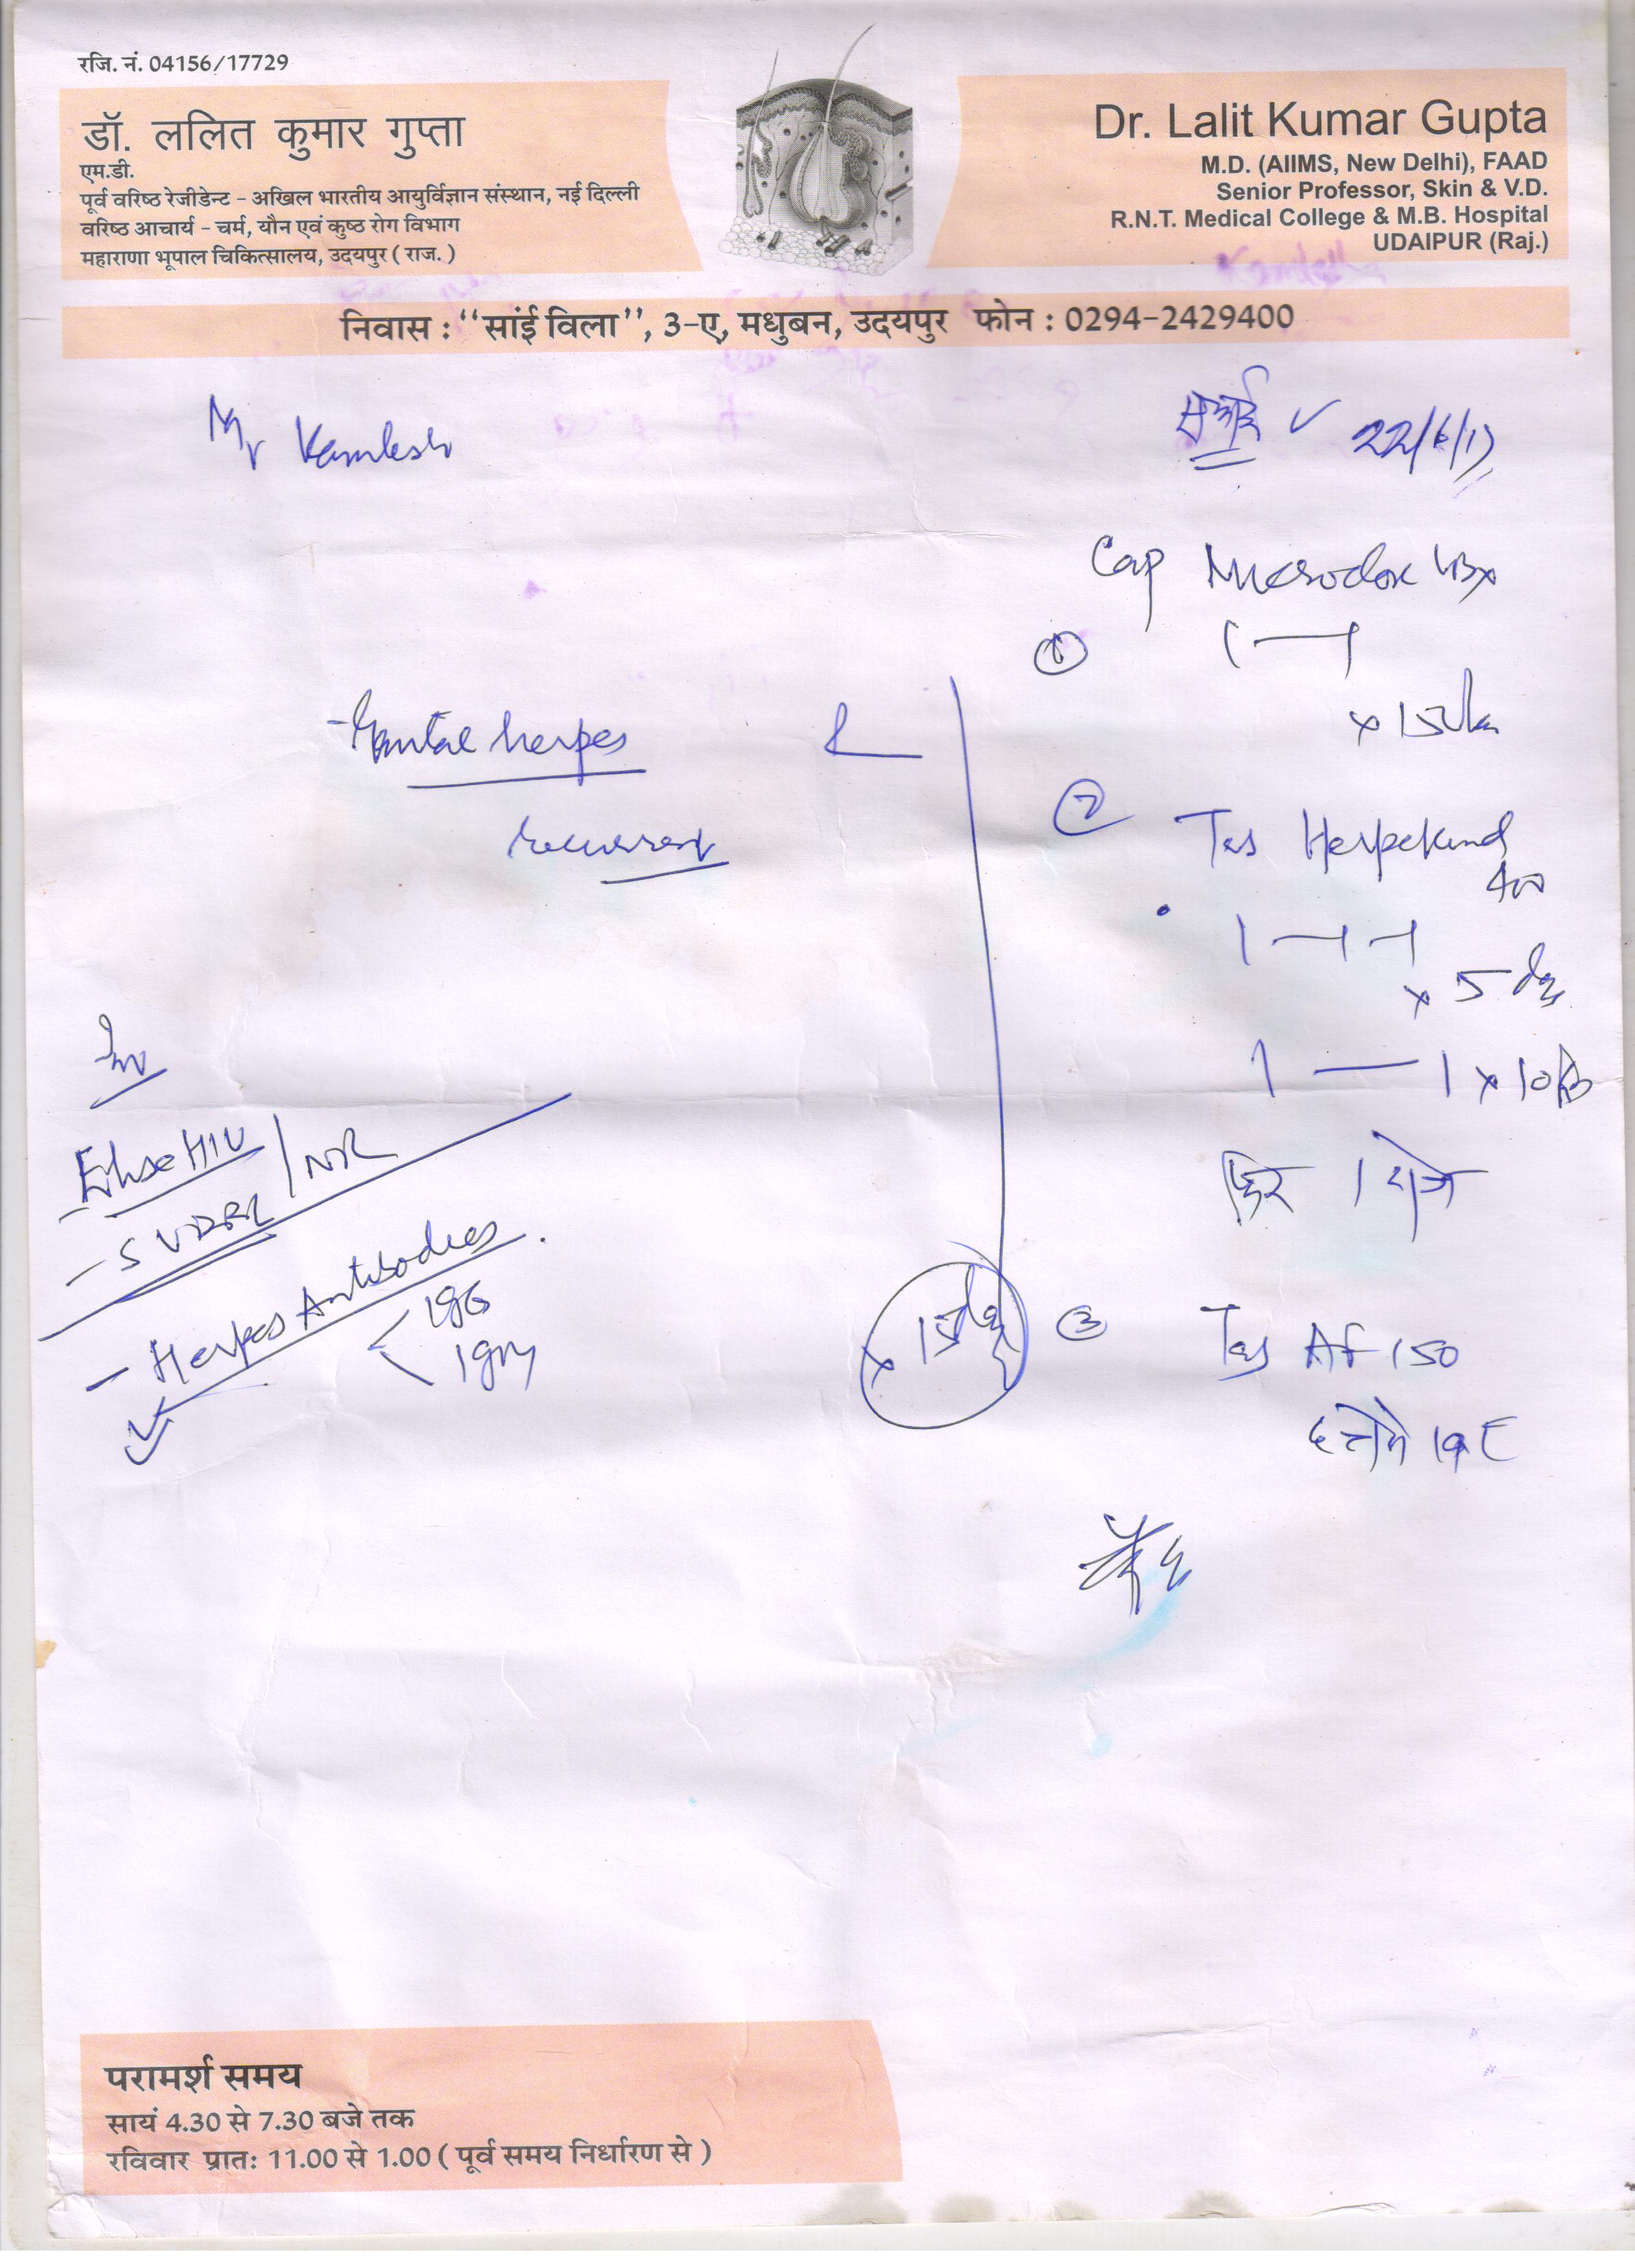 रजि. नं. 04156/17729
डॉ. ललित कुमार गुप्ता
एम.डी.
पूर्व वरिष्ठ रेजीडेन्ट - अखिल भारतीय आयुर्विज्ञान संस्थान, नई दिल्ली
वरिष्ठ आचार्य - चर्म, यौन एवं कुष्ठ रोग विभाग
महाराणा भूपाल चिकित्सालय, उदयपुर ( राज. )
Dr. Lalit Kumar Gupta
M.D. (AIIMS, New Delhi), FAAD
Senior Professor, Skin & V.D.
R.N.T. Medical College & M.B. Hospital
UDAIPUR (Raj.)
निवास : ‘‘सांई विला’’, 3-ए, मधुबन, उदयपुर फोन : 0294-2429400
Mr Kamlesh
सफाई ✓ 22/6/17
Genital herpes
recurrent
Inv
Elisa HIV / NR
- S VDRL
- Herpes Antibodies
IgG
IgM
Cap Microdox LBX
① 1 — 1
x 15
② Tab Herpekind
400
1 — 1 — 1
x 5 days
1 — 1 x 10
फिर 1 रोज
x 15 days
③ Tab AF 150
1
परामर्श समय
सायं 4.30 से 7.30 बजे तक
रविवार प्रातः 11.00 से 1.00 ( पूर्व समय निर्धारण से )